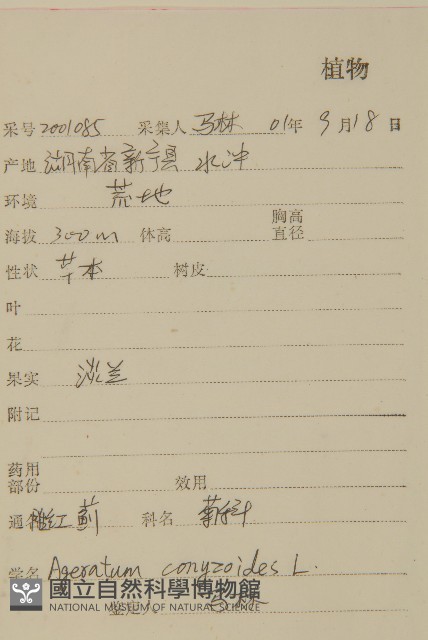 植物
采号 2001085 采集人 马林 01年 9月18日
产地 湖南省新宁县 水冲
环境 荒地
胸高
海拔 300m 体高 直径
性状 草本 树皮
叶
花
果实 淡兰
附记
药用
部份 效用
通名 红蓟 科名 菊科
学名 Ageratum conyzoides L.
國立自然科學博物館
NATIONAL MUSEUM OF NATURAL SCIENCE
鉴定人